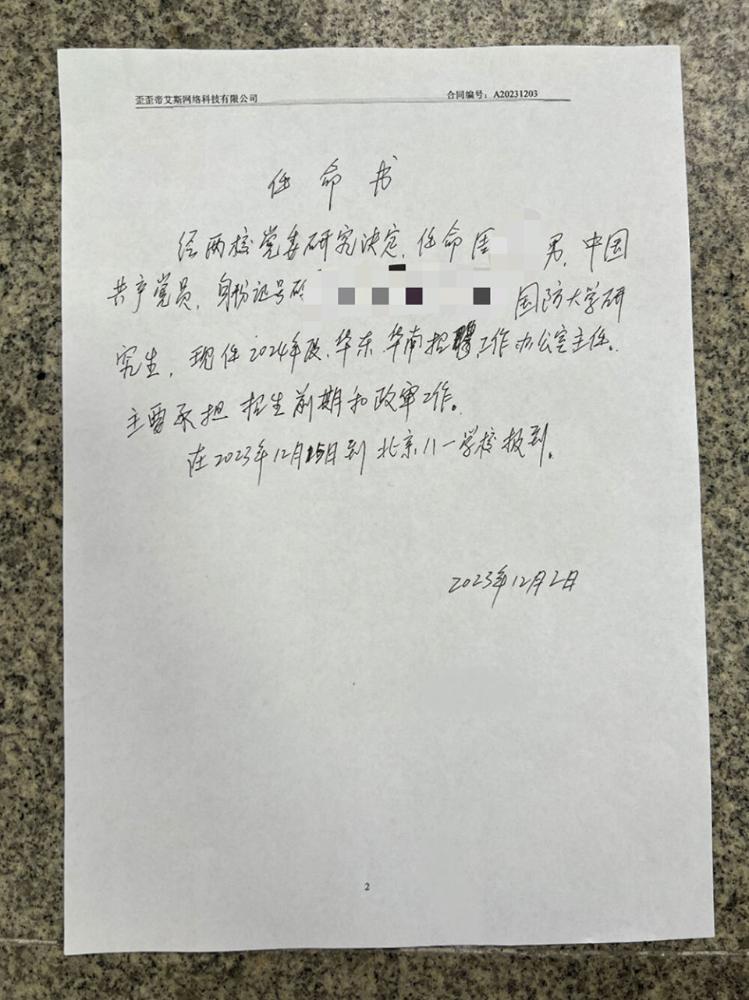 歪歪帝艾斯网络科技有限公司 合同编号：A20231203
任命书
经两校党委研究决定，任命 男，中国
共产党员，身份证号码 国防大学研
究生，现任2024年度、华东、华南招聘工作办公室主任。
主要承担招生前期和政审工作。
在2023年12月15日到北京八一学校报到。
2023年12月2日
2